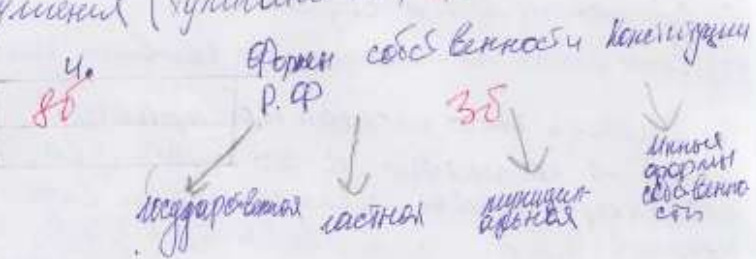 4. Формы собственности Конституции
8б Р.Ф 3б
государственная частная муниципальная иные формы собственности